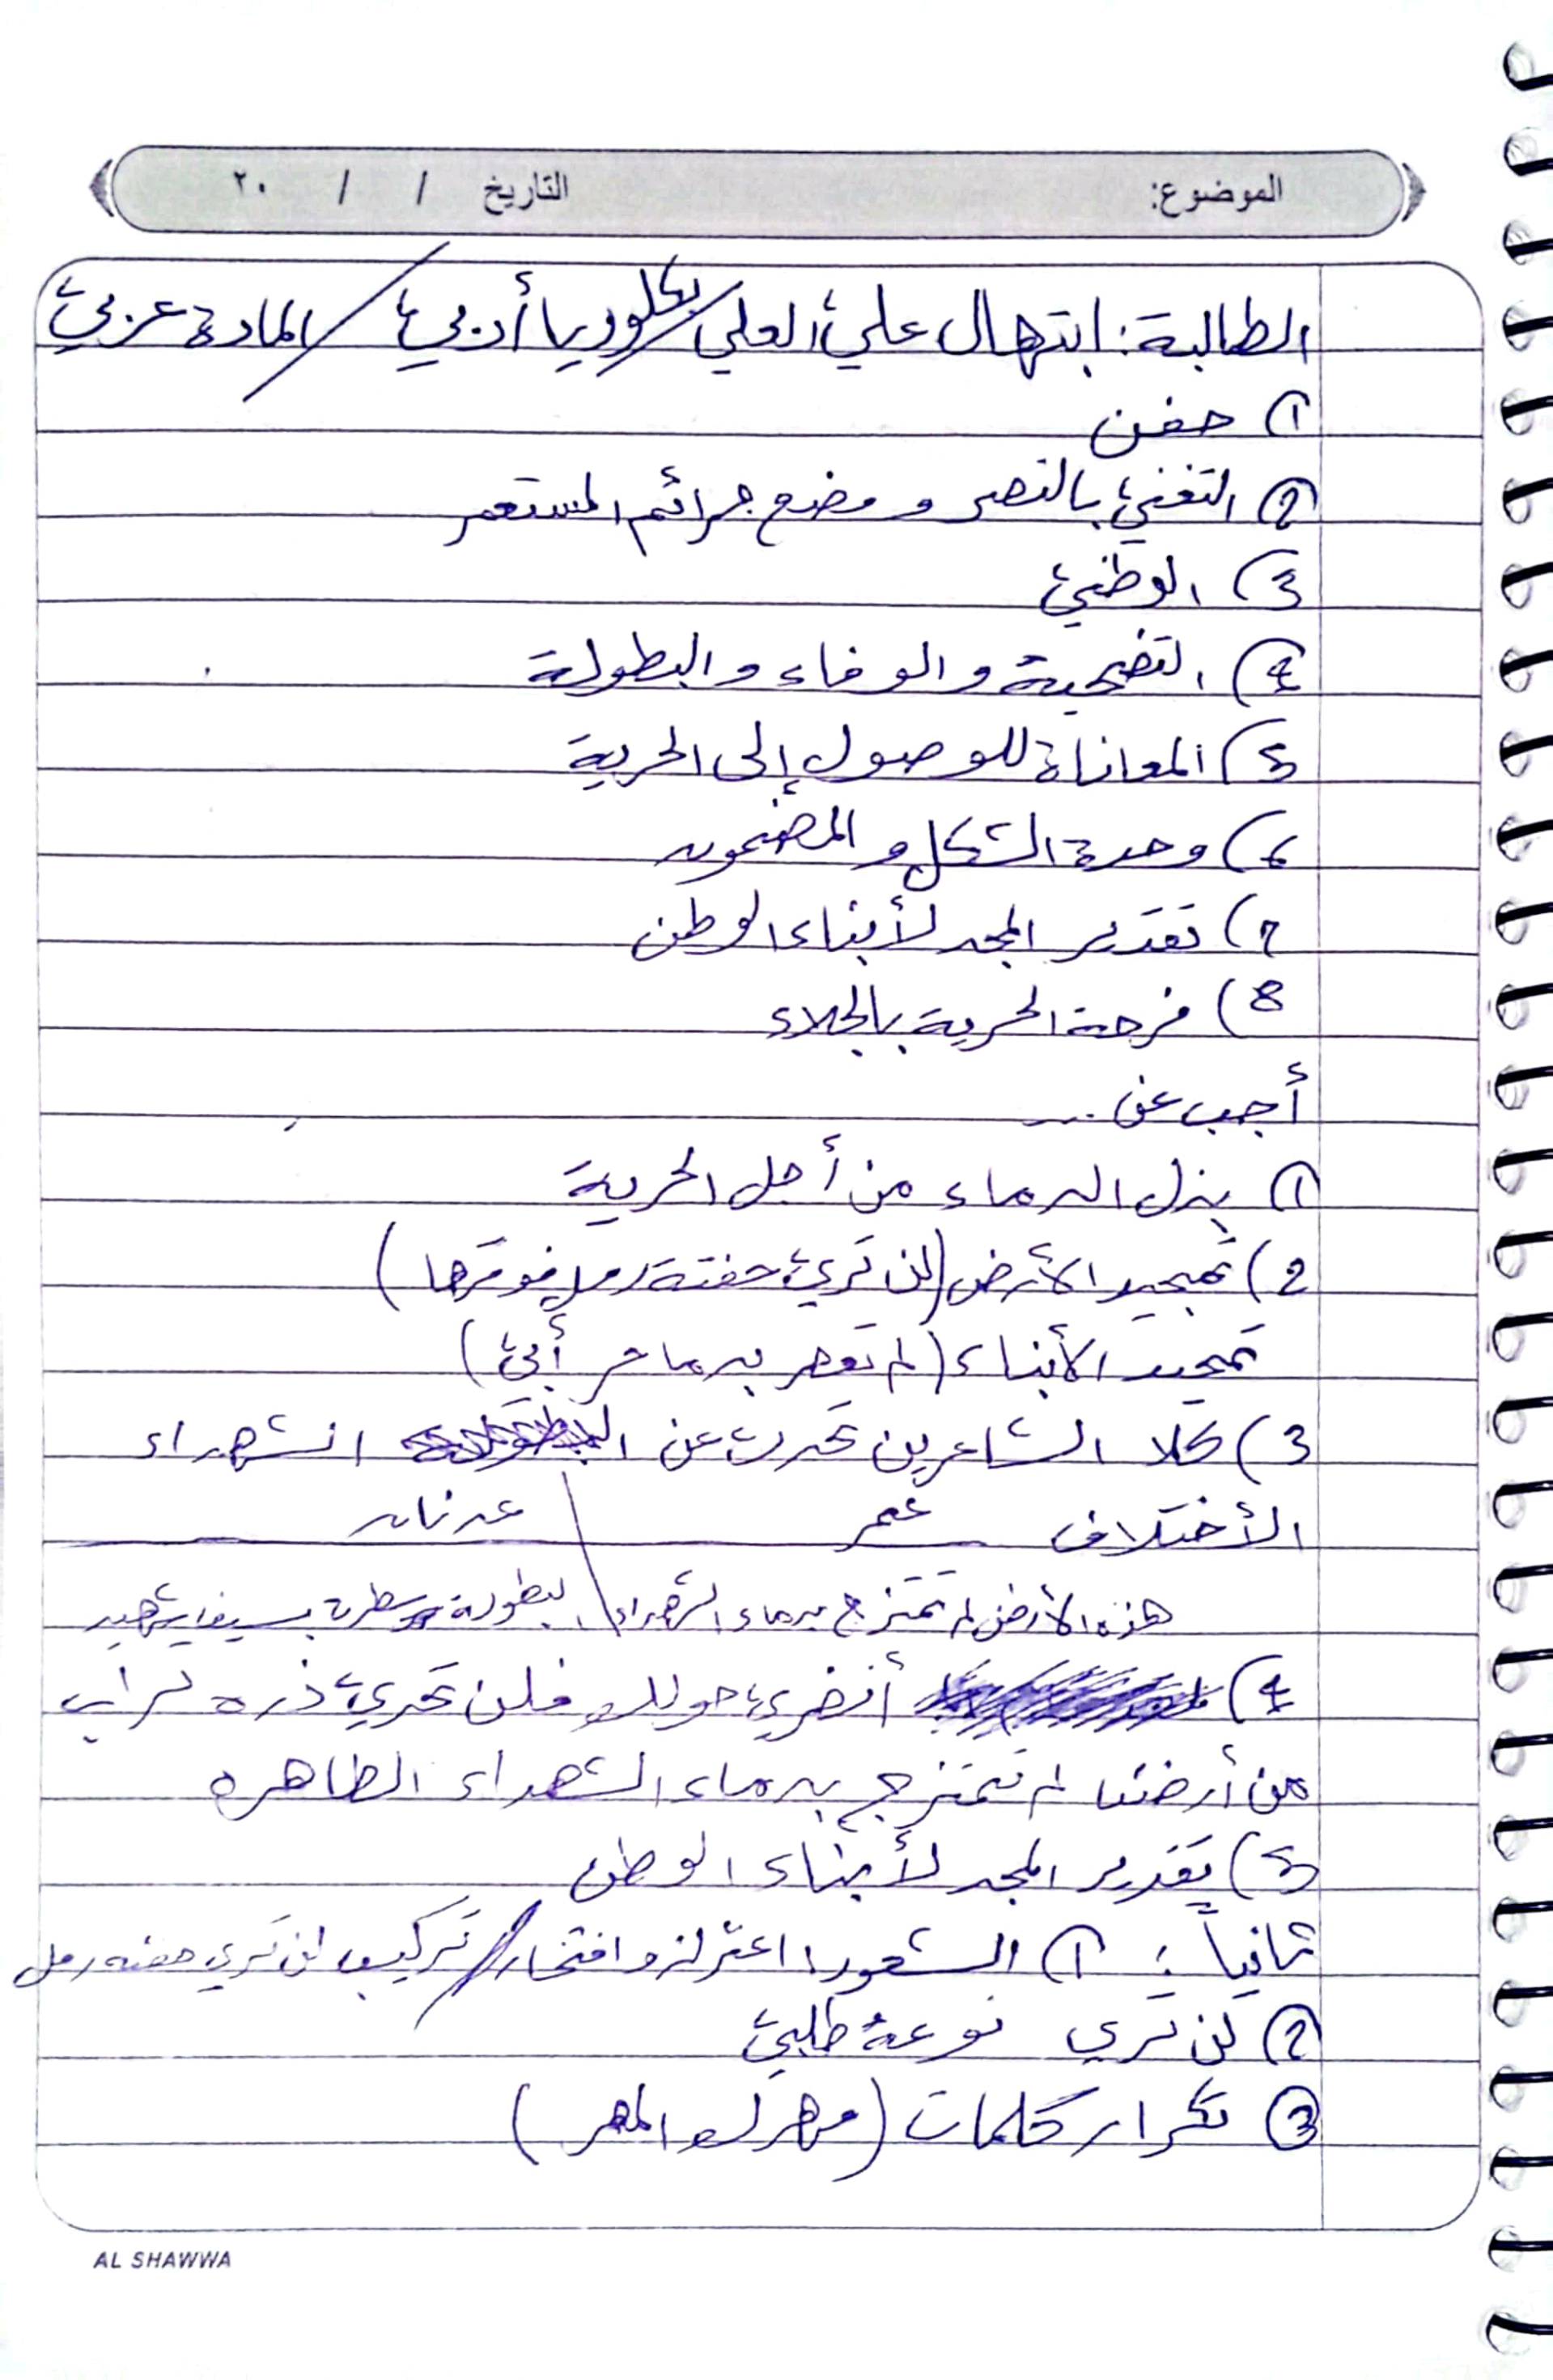 الموضوع: التاريخ / / ٢٠
الطالبة: ابتهال علي العلي / بكلوريا أدبي / المادة عربي
① حفن
② التغني بالنصر و فضح جرائم المستعمر
3) الوطني
4) التضحية و الوفاء و البطولة
5) المعاناة للوصول إلى الحرية
6) وحدة الشكل و المضمون
7) تقدير المجد لأبناء الوطن
8) فرحة الحرية بالجلاء
أجب عن ...
① بذل الدماء من أجل الحرية
2) تمجيد الأرض (لن تري حفنة رمل فوقها)
تمجيد الأبناء (لم تعطر بدما حر أبي)
3) كلا الشاعرين تحدث عن الشهداء
الأختلاف عمر / عدنان
هذه الأرض لم تمتزج بدماء الشهداء / البطولة سطرت بسيف شهيد
4) أنضري حولك فلن تجدي ذره تراب
من أرضنا لم تمتزج بدماء الشهداء الطاهره
5) تقدير المجد لأبناء الوطن
ثانياً: ① الشعور: اعتزاز و افتخار / تركيب لن تري حفنه رمل
② لن تري نوعه طلبي
③ تكرار كلمات (مهرك المهر)
AL SHAWWA